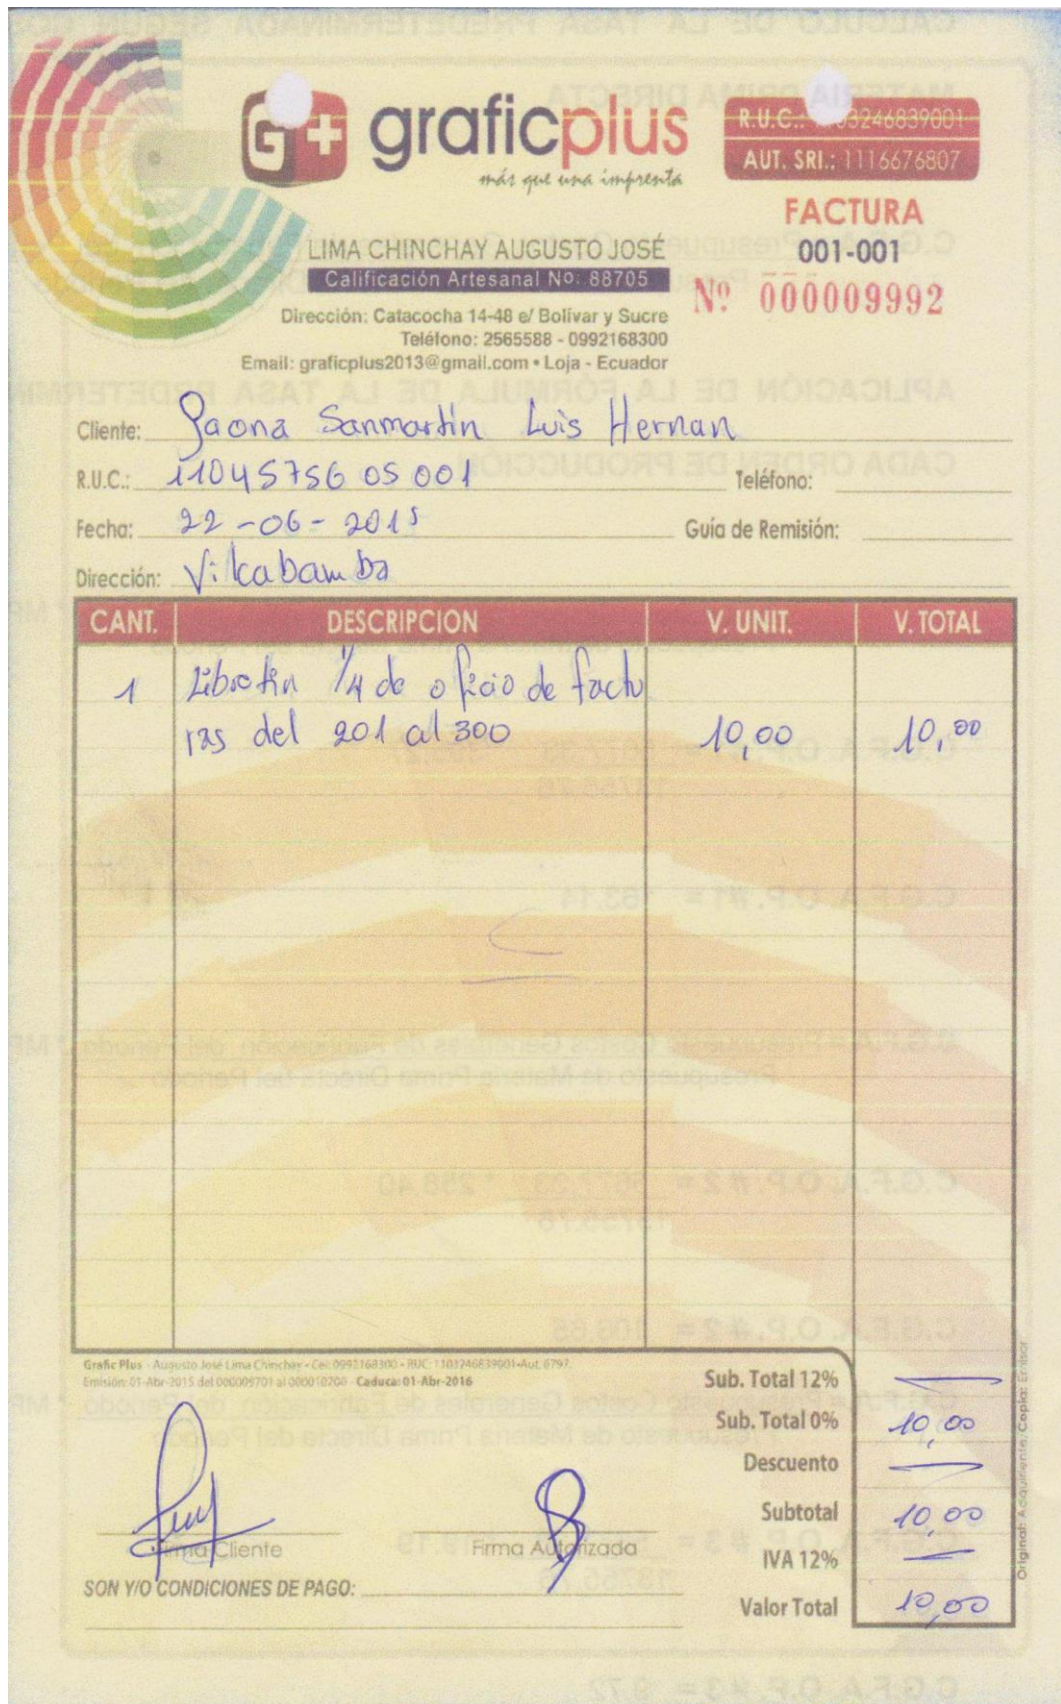 G+ graficplus
más que una imprenta
R.U.C.: 03246839001
AUT. SRI.: 1116676807
FACTURA
001-001
Nº 000009992
LIMA CHINCHAY AUGUSTO JOSÉ
Calificación Artesanal Nº: 88705
Dirección: Catacocha 14-48 e/ Bolívar y Sucre
Teléfono: 2565588 - 0992168300
Email: graficplus2013@gmail.com • Loja - Ecuador
Cliente: Gaona Sanmartín Luis Hernan
R.U.C.: 1104575605001 Teléfono:
Fecha: 22-06-2015 Guía de Remisión:
Dirección: Vilcabamba
CANT. DESCRIPCION V. UNIT. V. TOTAL
1 Libretin 1/4 de oficio de factu
ras del 201 al 300 10,00 10,00
Grafic Plus - Augusto José Lima Chinchay - Cel: 0992168300 - RUC: 1103246839001-Aut. 6797.
Emisión: 01-Abr-2015 del 000009701 al 000010200 - Caduca: 01-Abr-2016
Sub. Total 12%
Sub. Total 0% 10,00
Descuento
Subtotal 10,00
IVA 12%
Valor Total 10,00
Firma Cliente Firma Autorizada
SON Y/O CONDICIONES DE PAGO:
Original: Adquiriente/Copia: Emisor